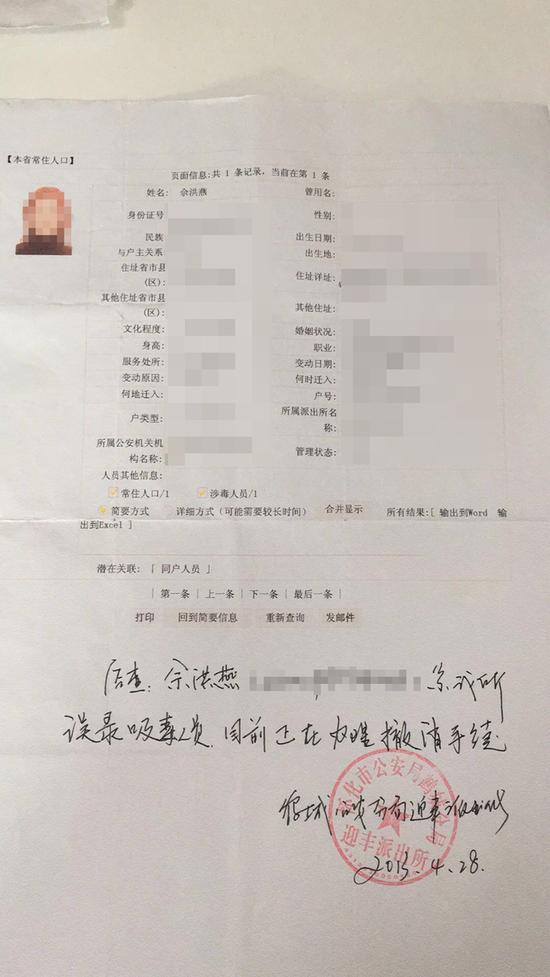 【本省常住人口】
页面信息:共 1 条记录, 当前在第 1 条
姓名: 佘洪燕 曾用名:
身份证号 性别:
民族 出生日期:
与户主关系 出生地:
住址省市县(区): 住址详址:
其他住址省市县(区): 其他住址:
文化程度: 婚姻状况:
身高: 职业:
服务处所: 变动日期:
变动原因: 何时迁入:
何地迁入: 户号:
户类型: 所属派出所名称:
所属公安机关机构名称: 管理状态:
人员其他信息:
常住人口/1 涉毒人员/1
简要方式 详细方式(可能需要较长时间) 合并显示 所有结果:[ 输出到Word 输
出到Excel ]
潜在关联: 「 同户人员 」
| 第一条 | 上一条 | 下一条 | 最后一条 |
打印 回到简要信息 重新查询 发邮件
后查: 佘洪燕 系我所
误录吸毒人员, 目前正在办理撤消手续
怀化市公安局鹤城分局
迎丰派出所
2015.4.28.